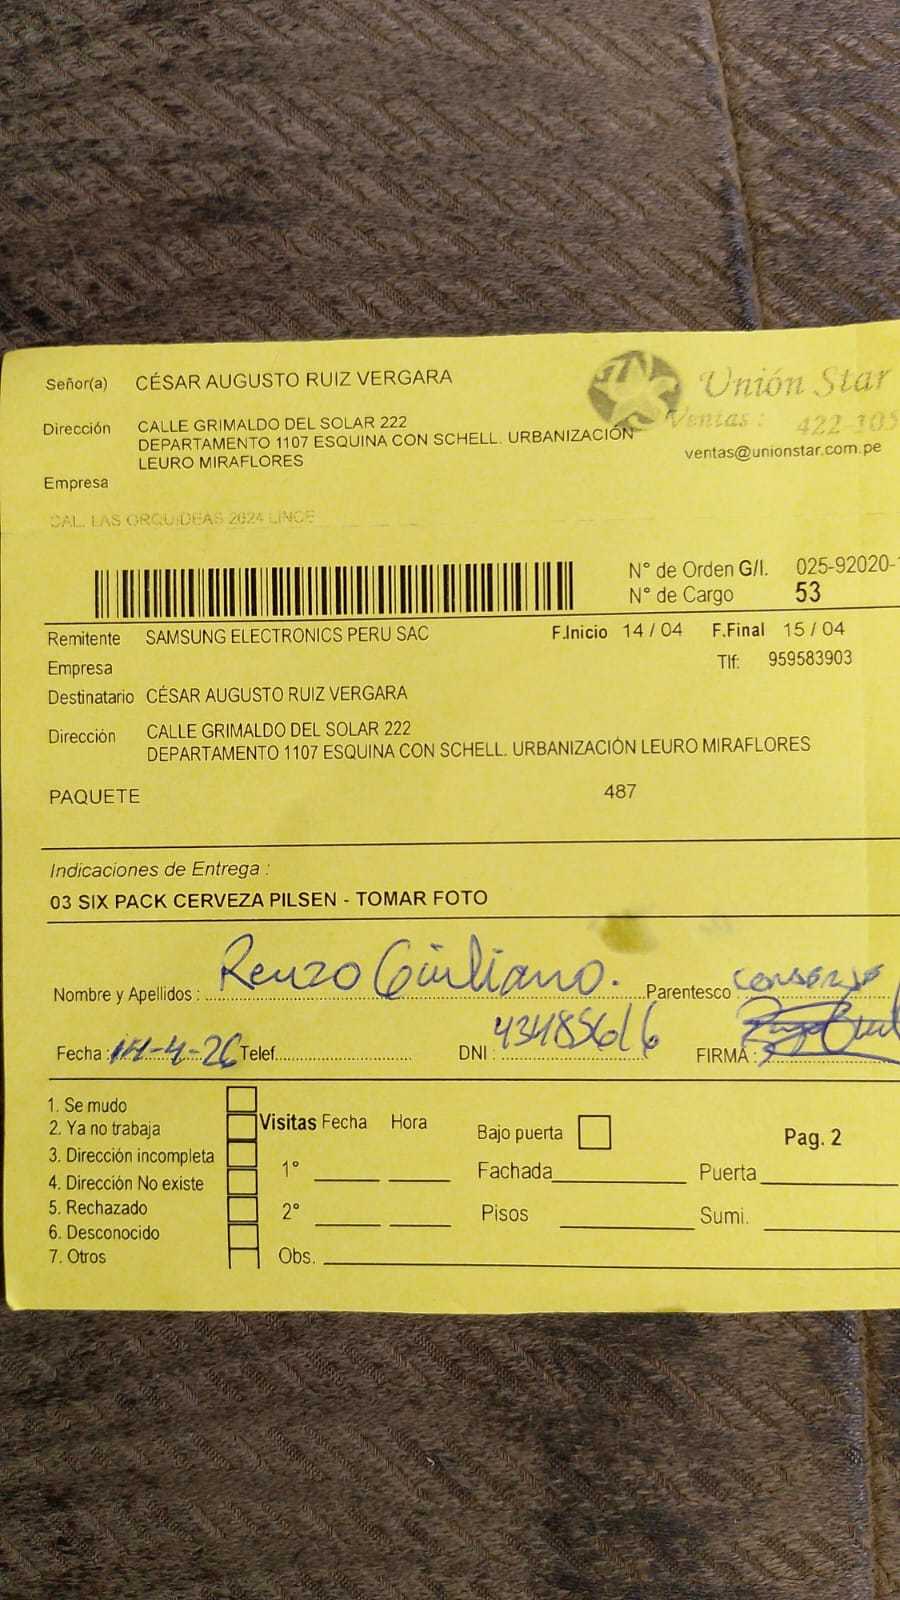 Señor(a) CÉSAR AUGUSTO RUIZ VERGARA
Unión Star
Ventas : 422-105
ventas@unionstar.com.pe
Dirección CALLE GRIMALDO DEL SOLAR 222
DEPARTAMENTO 1107 ESQUINA CON SCHELL. URBANIZACIÓN
LEURO MIRAFLORES
Empresa
CAL. LAS ORQUIDEAS 2624 LINCE
N° de Orden G/I. 025-92020-
N° de Cargo 53
Remitente SAMSUNG ELECTRONICS PERU SAC F.Inicio 14 / 04 F.Final 15 / 04
Empresa Tlf: 959583903
Destinatario CÉSAR AUGUSTO RUIZ VERGARA
Dirección CALLE GRIMALDO DEL SOLAR 222
DEPARTAMENTO 1107 ESQUINA CON SCHELL. URBANIZACIÓN LEURO MIRAFLORES
PAQUETE 487
Indicaciones de Entrega :
03 SIX PACK CERVEZA PILSEN - TOMAR FOTO
Nombre y Apellidos : Renzo Giuliano. Parentesco conserje
Fecha : 14-4-26 Telef. DNI : FIRMA :
1. Se mudo
2. Ya no trabaja
3. Dirección incompleta
4. Dirección No existe
5. Rechazado
6. Desconocido
7. Otros
Visitas Fecha Hora
1°
2°
Obs.
Bajo puerta Pag. 2
Fachada Puerta
Pisos Sumi.